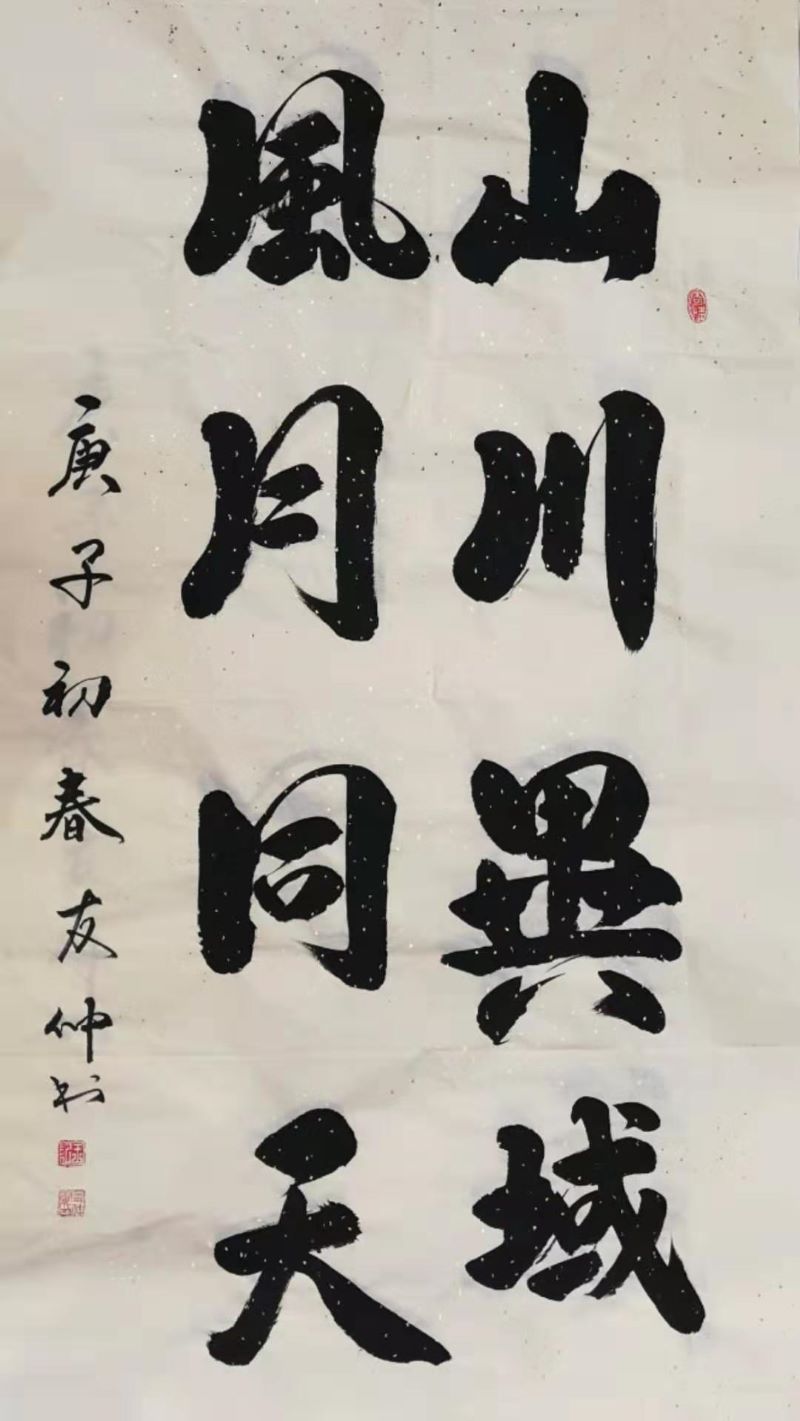 山川異域
風月同天
庚子初春友仲书